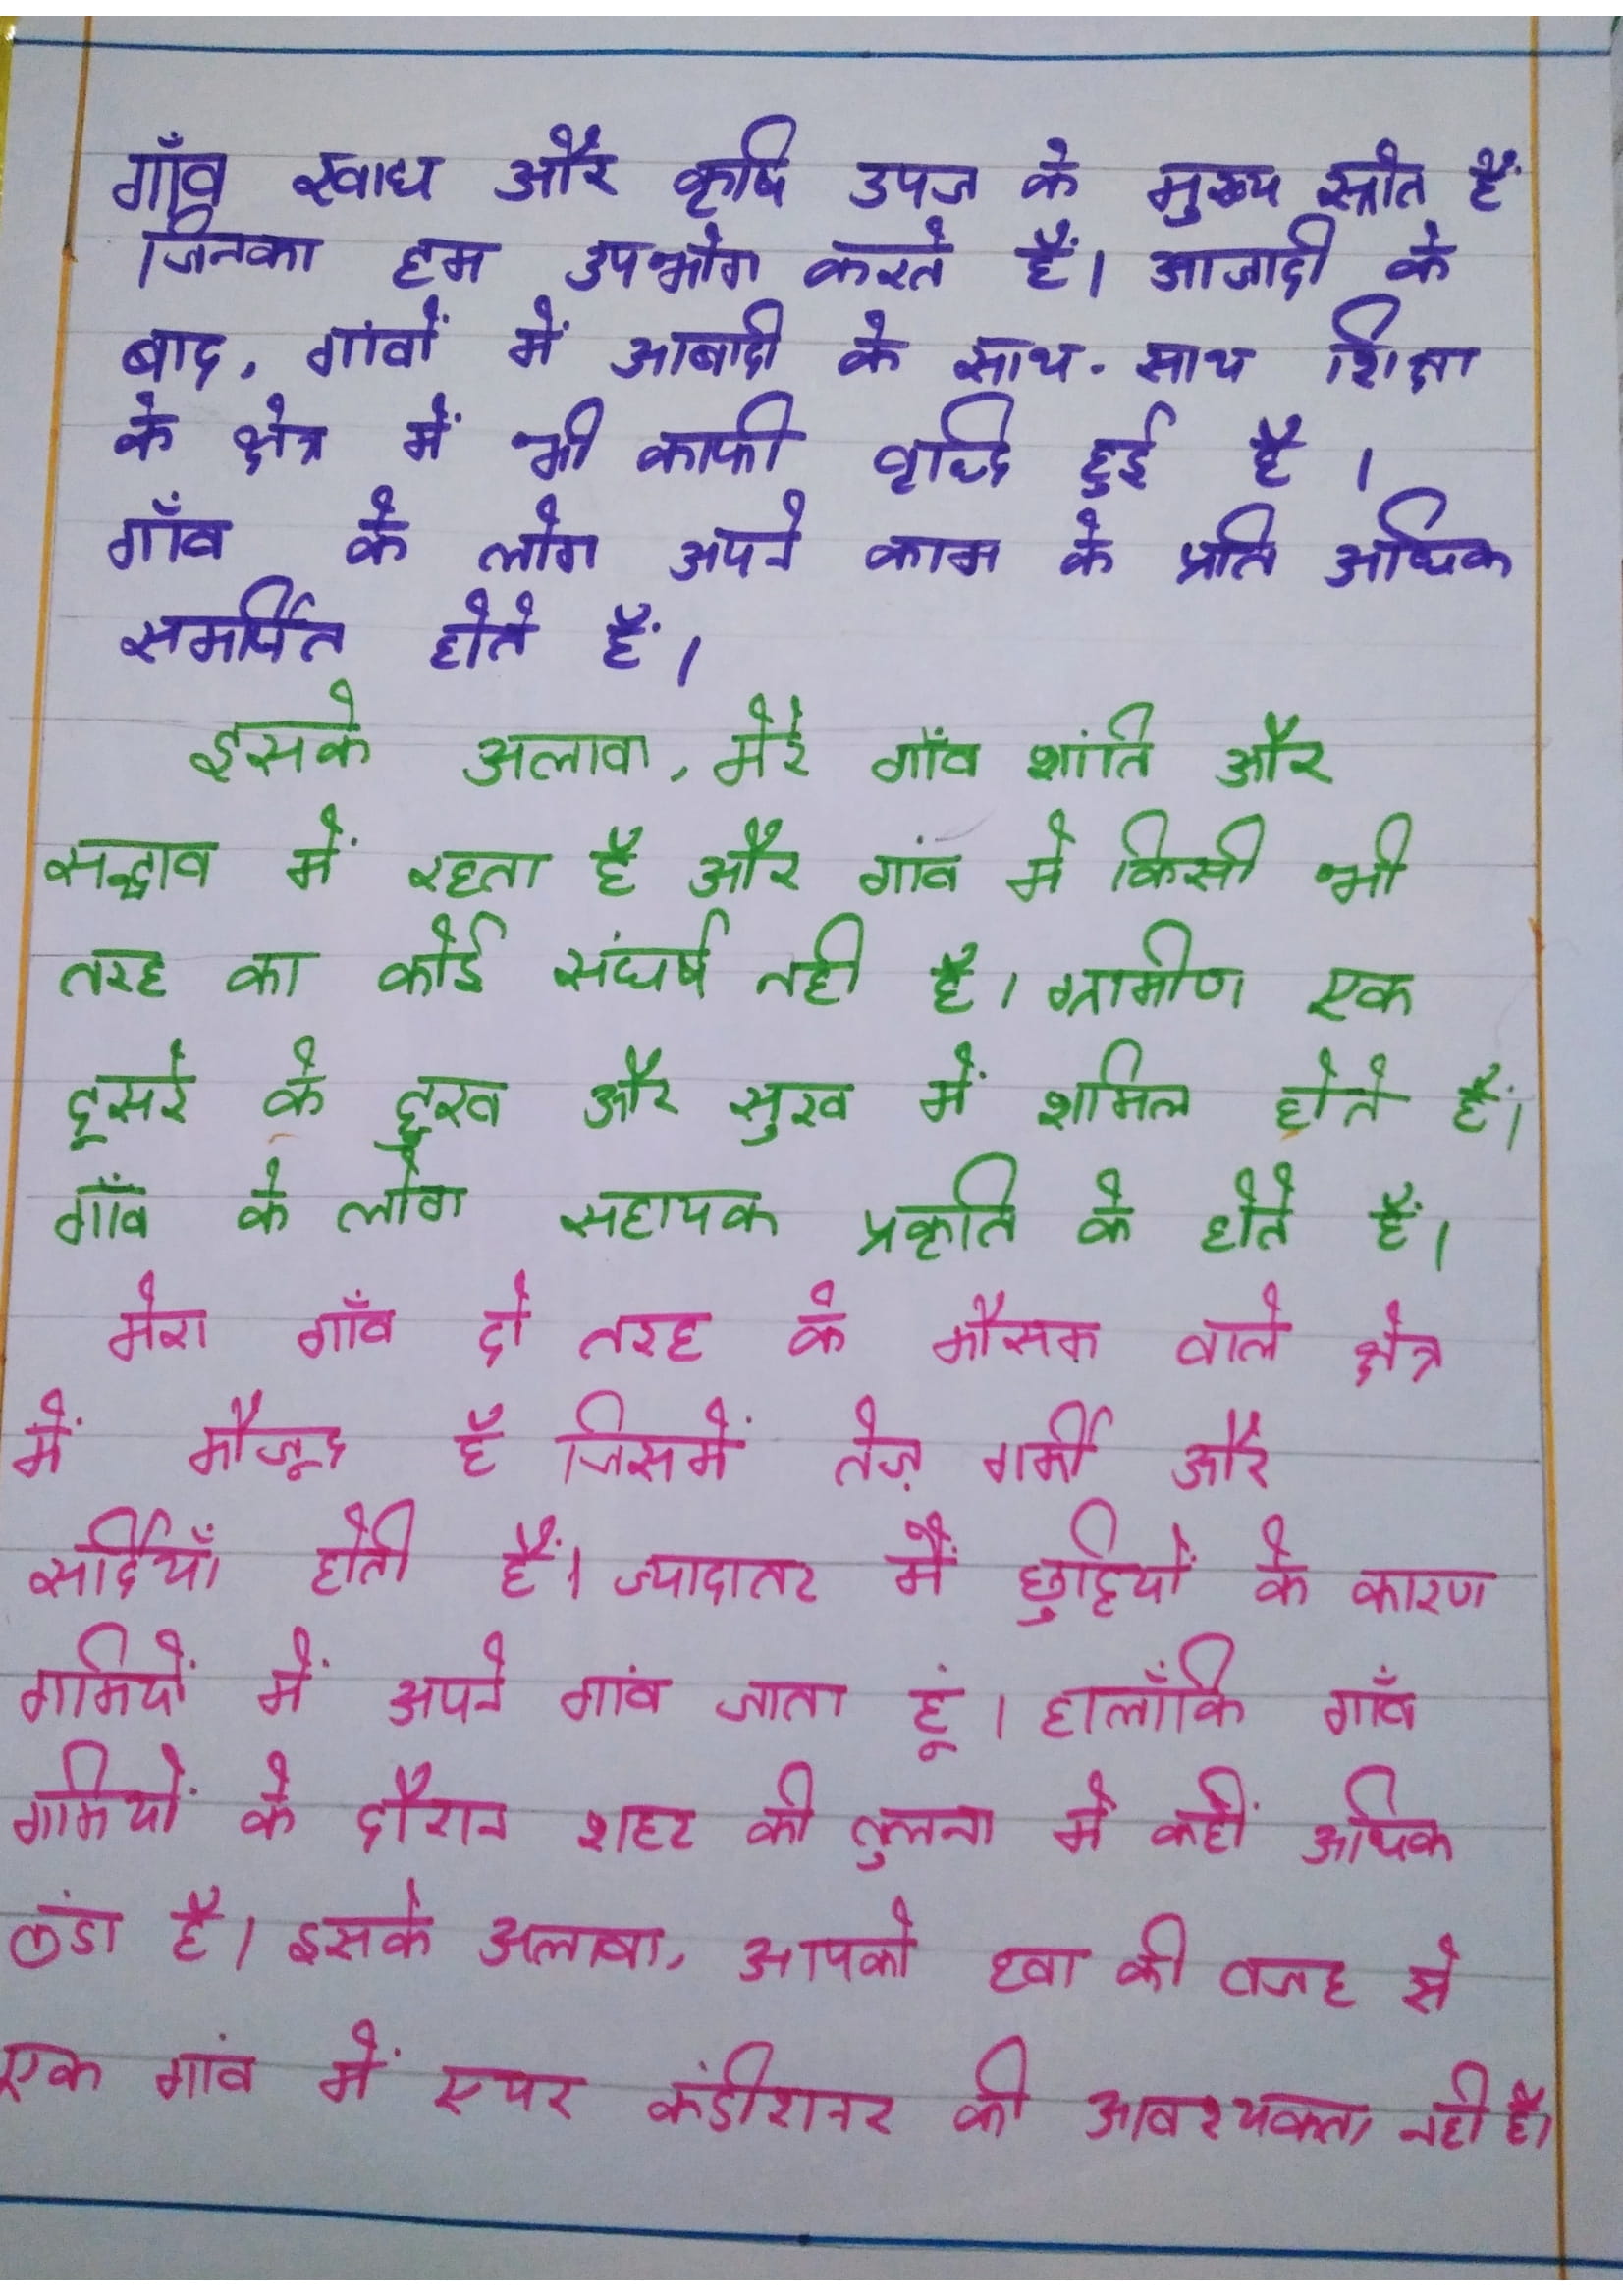 गाँव खाद्य और कृषि उपज के मुख्य स्त्रोत हैं
जिनका हम उपभोग करते हैं। आजादी के
बाद, गांवों में आबादी के साथ-साथ शिक्षा
के क्षेत्र में भी काफी वृद्धि हुई है ।
गाँव के लोग अपने काम के प्रति अधिक
समर्पित होते हैं।
इसके अलावा, मेरे गाँव शांति और
सद्भाव में रहता है और गांव में किसी भी
तरह का कोई संघर्ष नही है। ग्रामीण एक
दूसरे के दुख और सुख में शामिल होते हैं।
गाँव के लोग सहायक प्रकृति के होते हैं।
मेरा गाँव दो तरह के मौसम वाले क्षेत्र
में मौजूद है जिसमें तेज़ गर्मी और
सर्दियाँ होती हैं। ज्यादातर मैं छुट्टियों के कारण
गर्मियों में अपने गांव जाता हूं। हालाँकि गाँव
गर्मियों के दौरान शहर की तुलना में कहीं अधिक
ठंडा है। इसके अलावा, आपको हवा की वजह से
एक गांव में एयर कंडीशनर की आवश्यकता नही है।